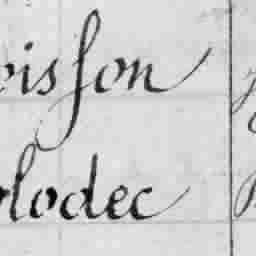 oisson
olodec